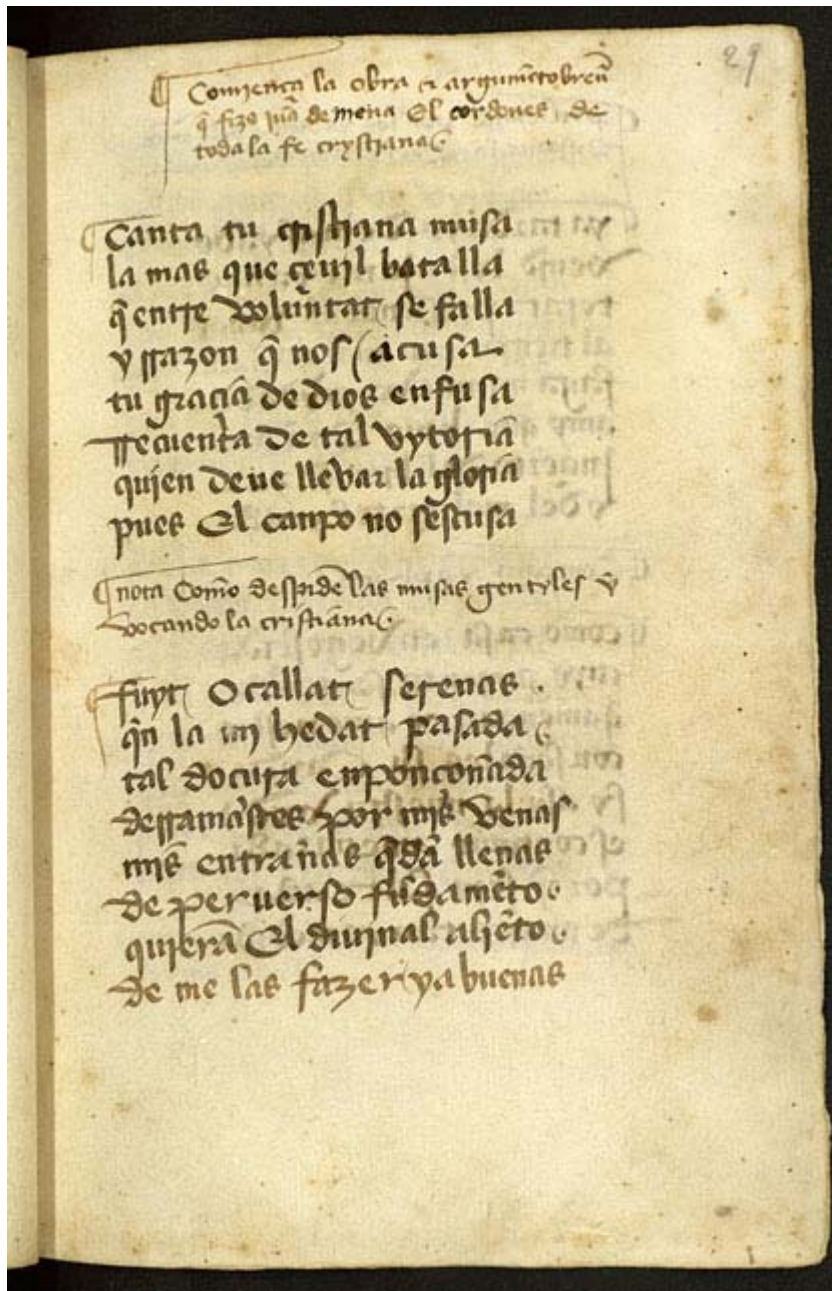 29
Comiença la obra & argumẽto breuẽ
q̃ fizo juã de mena El cordoues de
toda la fe crystiana
Canta tu cristiana musa
la mas que çeuil batalla
q̃ entre voluntat se falla
y rrazon q̃ nos acusa
tu graçia de dios enfusa
rrecuenta de tal vytoria
quien deue llebar la gloria
pues El canpo no sescusa
nota Como despidẽ las musas gentyles y
vocando la cristiana
fuyt O callat serenas
q̃n la mj hedat pasada
tal doçura enponçoñada
derramastes por mis venas
mis entrañas q̃dã llenas
de peruerso fũdamẽto
quierã El diujnal aliẽto
de me las fazer ya buenas